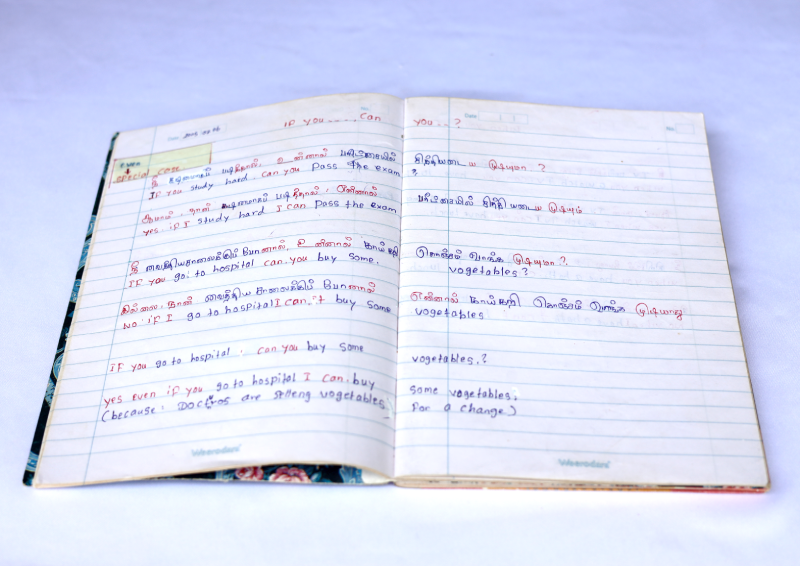 If you .... can you ..?
Date
No:
Even
special case
நீ கடினமாகப் படித்தால், உன்னால் பரீட்சையில் சித்தியடைய முடியுமா ?
If you study hard, can you pass the exam ?
ஆமாம் நான் கடினமாகப் படித்தால், என்னால் பரீட்சையில் சித்தியடைய முடியும்
yes. if I study hard I can pass the exam
நீ வைத்தியசாலைக்குப் போனால், உன்னால் காய்கறி கொஞ்சம் வாங்க முடியுமா ?
If you go to hospital can you buy some. vogetables ?
இல்லை, நான் வைத்தியசாலைக்குப் போனால் என்னால் காய்கறி கொஞ்சம் வாங்க முடியாது
No. if I go to hospital I can't buy some vogetables
If you go to hospital . can you buy some vogetables. ?
yes even if you go to hospital I can. buy some vogetables.
(because: Doctros are selleng vogetables for a change)
Weerodara
Weerodara